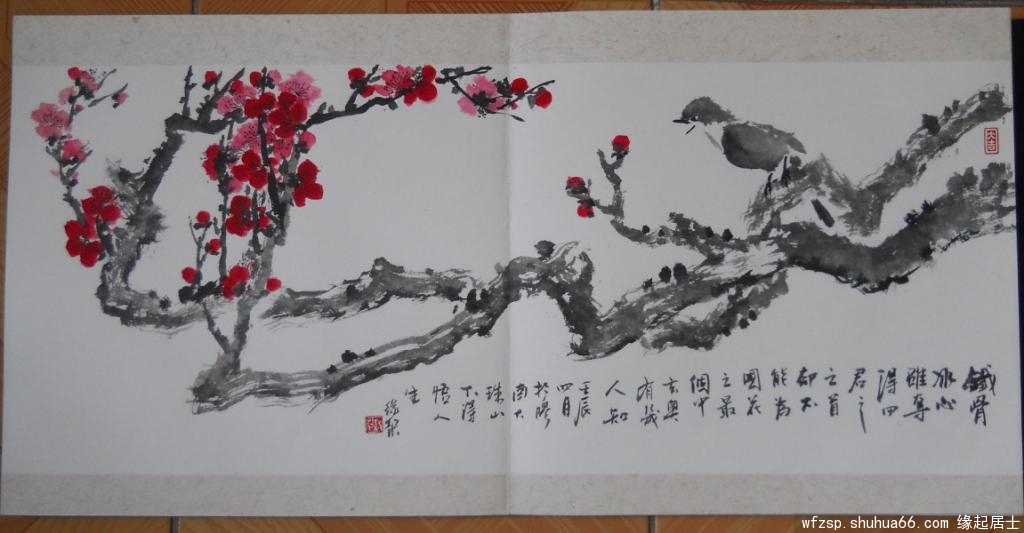 鐵骨
冰心
雖奪
得四
君之
之首
却不
能为
國花
之最
個中
玄奥
有幾
人知
壬辰
四月
於膠
南大
珠山
下得
悟人
生
大吉
wfzsp.shuhua66.com 缘起居士